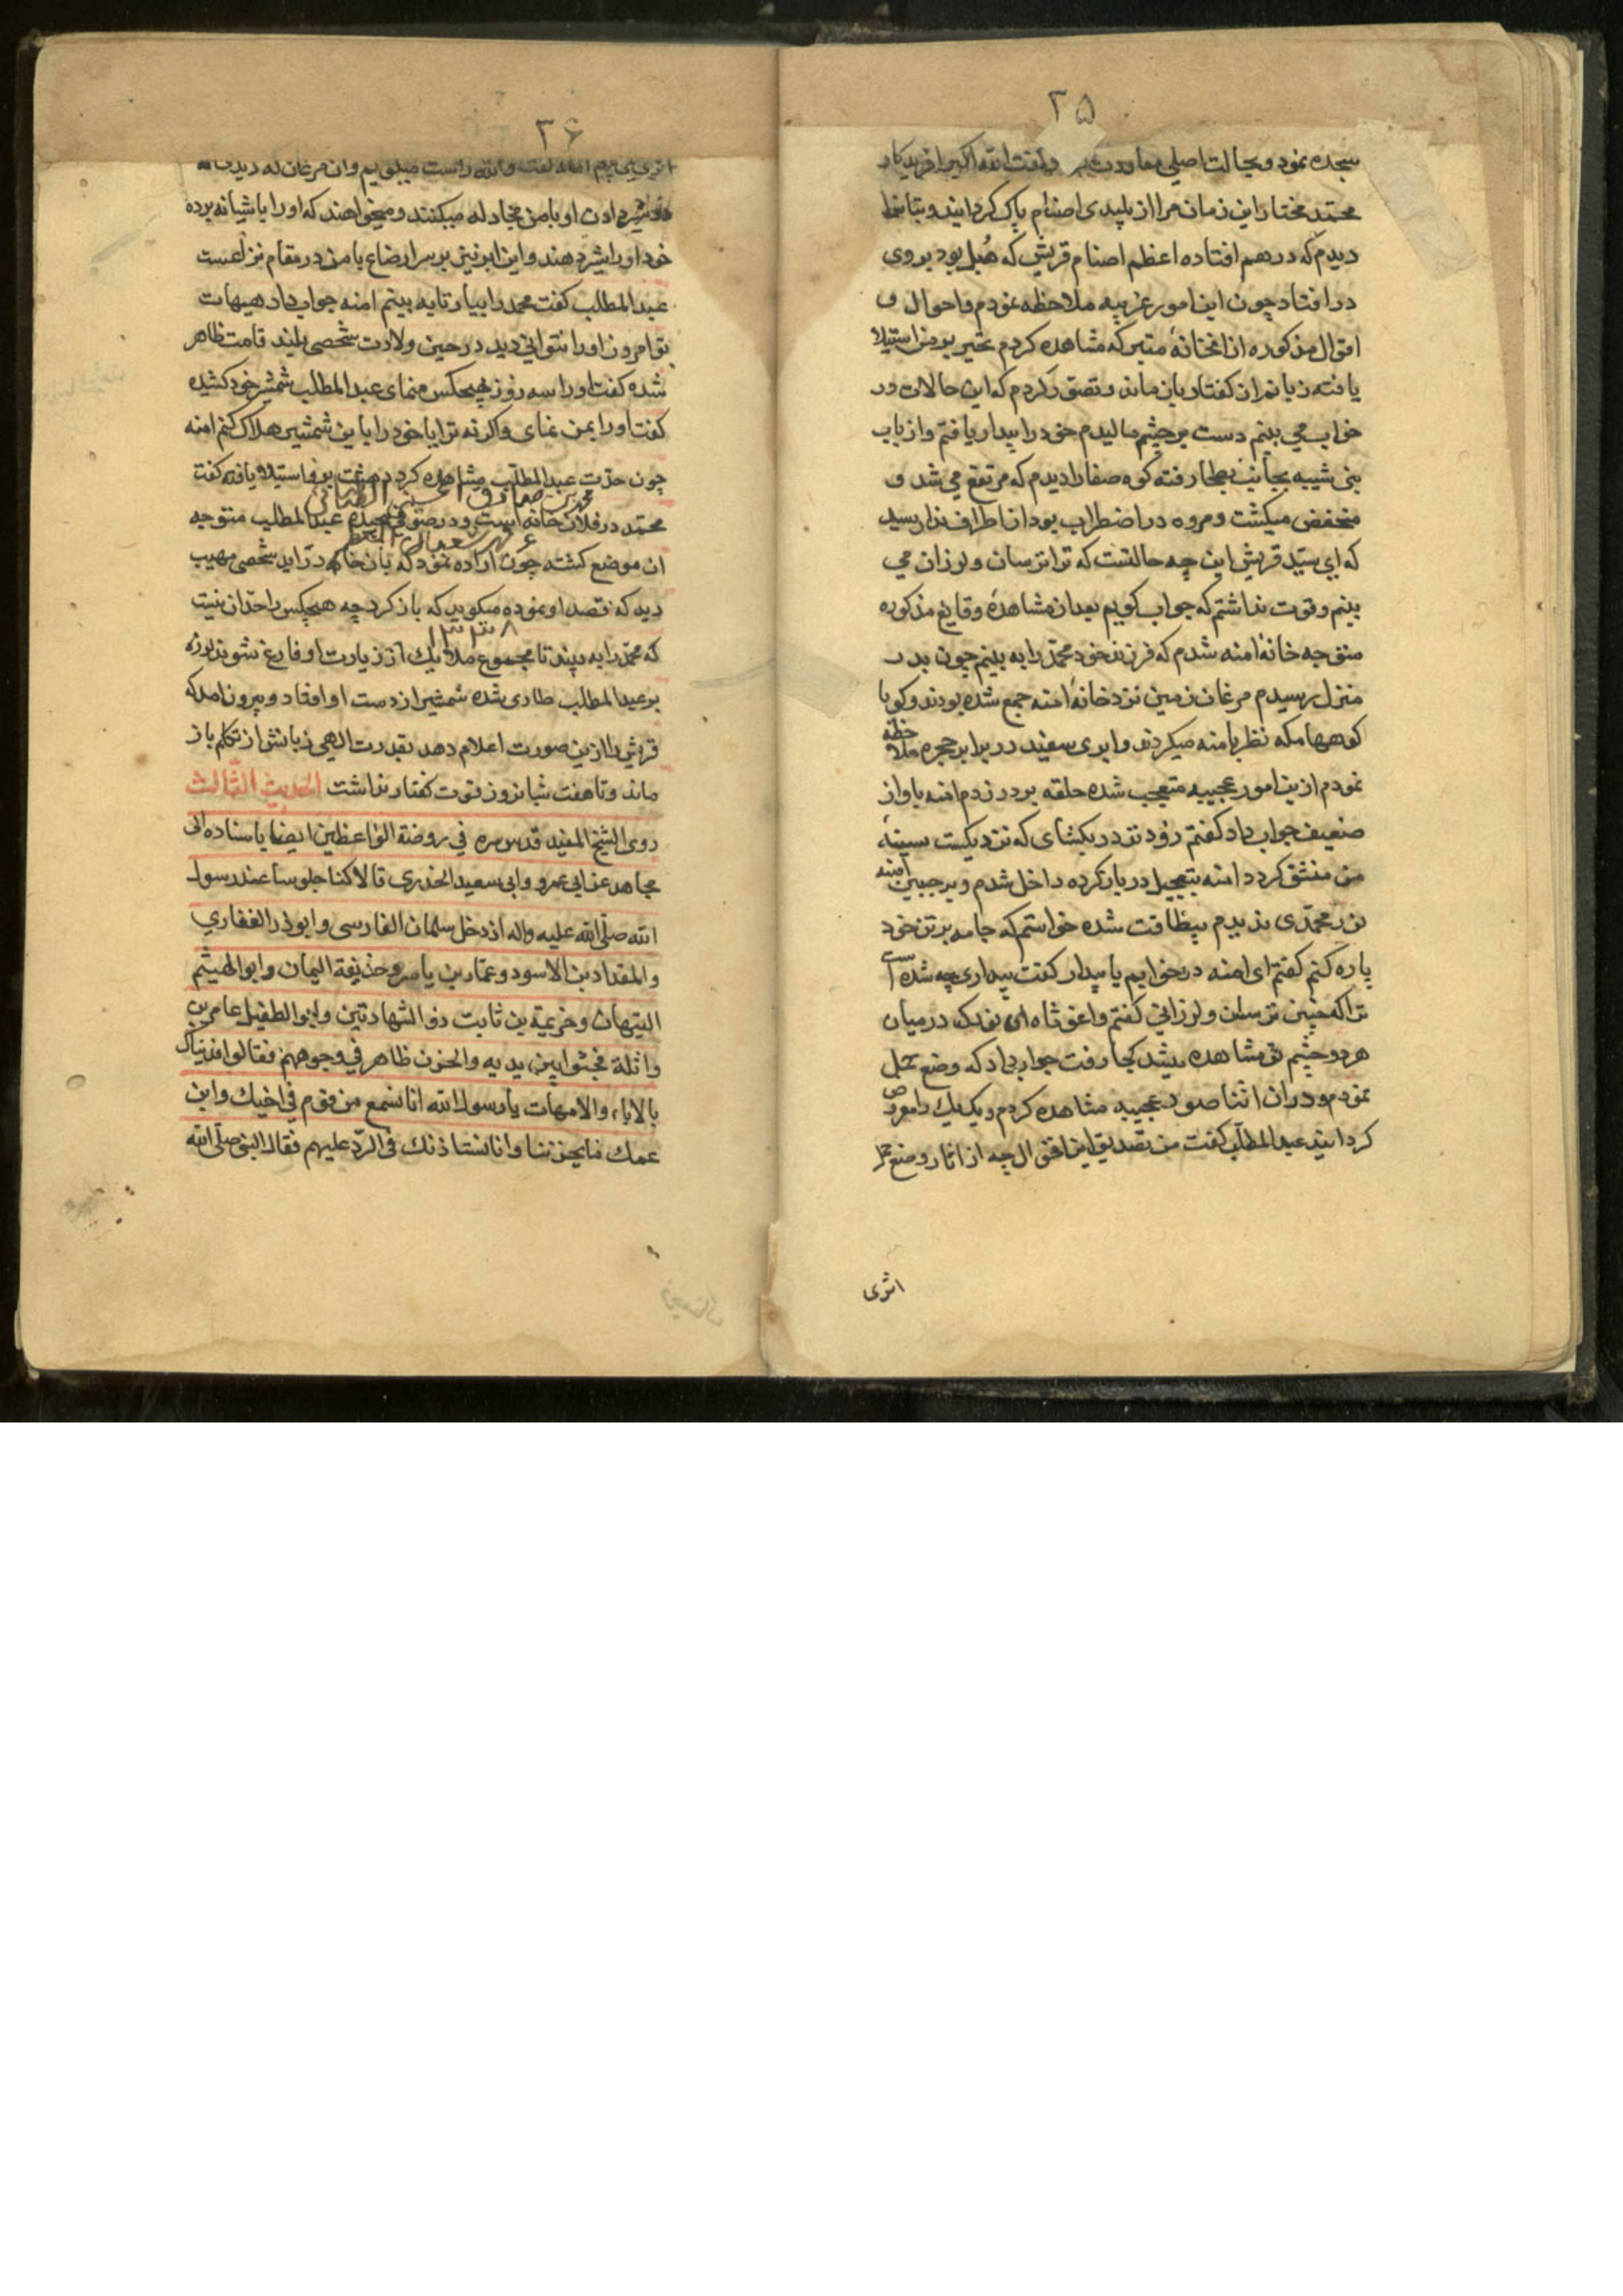 ۳۵
سجده نمود و بحالت اصلی معاودت و گفت الله اکبر آفریدکار
محمد مختار این زمان مرا از پلیدی اصنام پاک کردانید و بتانرا
دیدم که درهم افتاده اعظم اصنام قریش که هُبل بود بروی
در افتاد چون این امور غریبه ملاحظه نمودم و احوال و
اقوال مذکوره از انخانهٔ متبرکه مشاهده کردم تحیر بر من استیلا
یافته زبانم از کفتار باز ماند و تصور کردم که این حالات در
خواب می بینم دست بر چشم مالیدم خود را بیدار یافتم و از باب
بنی شیبه بجانب بطحا رفته کوه صفا را دیدم که مرتفع می شد و
منخفض میکشت و مروه در اضطراب بود از اطراف ندا رسید
که ای سید قریش این چه حالتست که ترا ترسان و لرزان می
بینم و قوت نداشتم که جواب کویم بعد از مشاهدهٔ وقایع مذکوره
متوجه خانه امنه شدم که فرزند خود محمد را به بینم چون بدر
منزل رسیدم مرغان زمین نزد خانهٔ امنه جمع شده بودند و کویا
کوههای مکه نظر بامنه میکردند و ابری سفید در برابر حجره ملاحظه
نمودم ازین امور عجیبه متعجب شده حلقه بر در زدم امنه باواز
ضعیف جواب داد کفتم زود تر در بکشای که نزدیکست سینهٔ
من منشق کردد امنه بتعجیل در باز کرده داخل شدم و بر جبین امنه
نور محمدی ندیدم بیطاقت شده خواستم که جامه بر تن خود
پاره کنم کفتم ای امنه در خوابم یا بیدار کفت بیداری چه شده است
ترا که چنین ترسان و لرزانی کفتم واغوثاه آن نور که در میان
هر دو چشم تو مشاهده میشد کجا رفت جواب داد که وضع حمل
نمودم و در ان اثنا صور عجیبه مشاهده کردم و یک یک را معروض
کردانید عبد المطلب کفت من تصدیق این اقوال چه از اثار وضع حمل
اثری
۳۶
اثری نمی بینم امنه گفت والله راست میگویم و ان مرغان که دیدی
در شیر دادن او با من مجادله میکنند و میخواهند که او را باشیانه برده
خود او را شیر دهند و این ابر نیز بر سر ارضاع با من در مقام نزاعست
عبد المطلب کفت محمد را بیار تا به بینم امنه جواب داد هیهات
تو امروز او را نتوانی دید در حین ولادت شخصی بلند قامت ظاهر
شده کفت او را سه روز بهیچکس منمای عبد المطلب شمشیر خود کشیده
کفت او را بمن نمای واکرنه ترا یا خود را باین شمشیر هلاک کنم امنه
چون حدت عبد المطلب مشاهده کرد دهشت بر او استیلا یافته کفت
محمد در فلان خانه است و در صوف پیچیده عبد المطلب متوجه
ان موضع کشته چون اراده نمود که بان خانه در اید شخصی مهیب
دید که قصد او نموده میکوید که باز کرد چه هیچکس را حد ان نیست
که محمد را به بیند تا مجموع ملائیک از زیارت او فارغ شوند لرزه
بر عبد المطلب طاری شده شمشیر از دست او افتاد و بیرون امد که
قریش را ازین صورت اعلام دهد بقدرت الهی زبانش از تکلم باز
ماند و تا هفت شبانروز قوت کفتار نداشت الحدیث الثّالث
روی الشیخ المفید قدس سره فی روضة الواعظین ایضا باسناده الی
مجاهد عن ابی عمرو و ابی سعید الخدری قالا کنا جلوسا عند رسول
الله صلّی الله علیه واله اذ دخل سلمان الفارسی و ابوذر الغفاری
و المقداد بن الاسود و عمّار بن یاسر و حذیفة الیمان و ابو الهیثم
التیهان و خزیمة بن ثابت ذو الشهادتین و ابو الطفیل عامر بن
واثلة فجثوا بین یدیه و الحزن ظاهر فی وجوههم فقالوا فدیناک
بالاباء و الامهات یا رسول الله انا نسمع من قوم فی اخیک و ابن
عمک ما یحزننا و انا نستاذنک فی الردّ علیهم فقال النبی صلّی الله